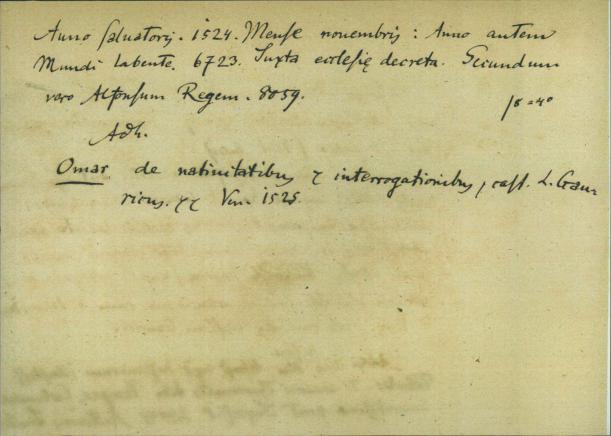 Anno Salvatoris. 1524. Mense novembris : Anno autem
Mundi labente. 6723. Iuxta ecclesię decreta. Secundum
vero Alfonsum Regem. 8059.
8°=4°
Adh.
Omar de nativitatibus & interrogationibus, cast. L. Gau-
ricus. Ven. 1525.